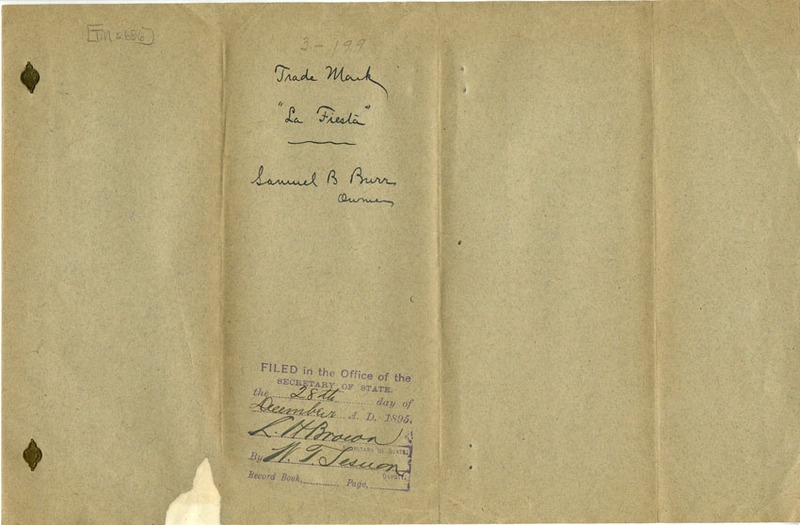 TM 2686
3-199
Trade Mark
"La Fiesta"
Samuel B Burr
Owner
FILED in the Office of the
SECRETARY OF STATE.
the 28th day of
December A. D. 1895.
L. H. Brown
SECRETARY OF STATE.
By W. T. Sesnon
Deputy.
Record Book, Page,